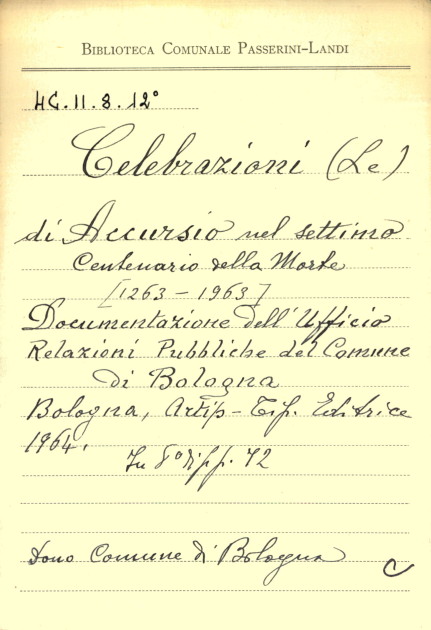 BIBLIOTECA COMUNALE PASSERINI-LANDI
4G.II.8.12°
Celebrazioni (Le)
di Accursio nel settimo
Centenario della Morte
[1263-1963]
Documentazione dell'Ufficio
Relazioni Pubbliche del Comune
di Bologna
Bologna, Artip-Tip. Editrice
1964.
In 8° di pp. 72
Dono Comune di Bologna
C